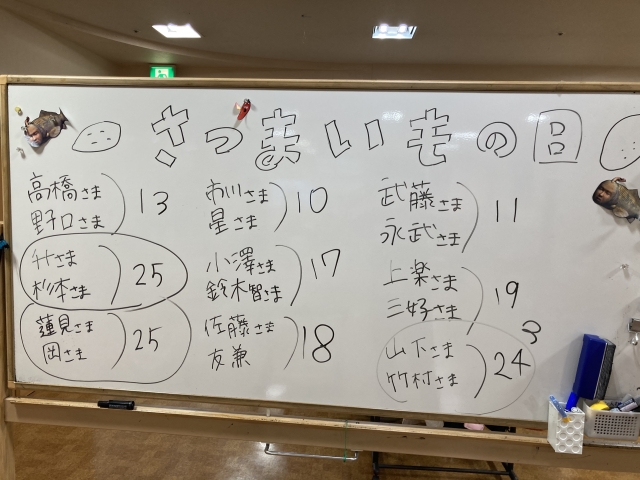 さつまいもの日
高橋さま
野口さま
13
升さま
杉本さま
25
蓮見さま
岡さま
25
市川さま
星さま
10
小澤さま
鈴木智さま
17
佐藤さま
友兼
18
武藤さま
永武さま
11
上楽さま
三好さま
19
山下さま
竹村さま
24
3